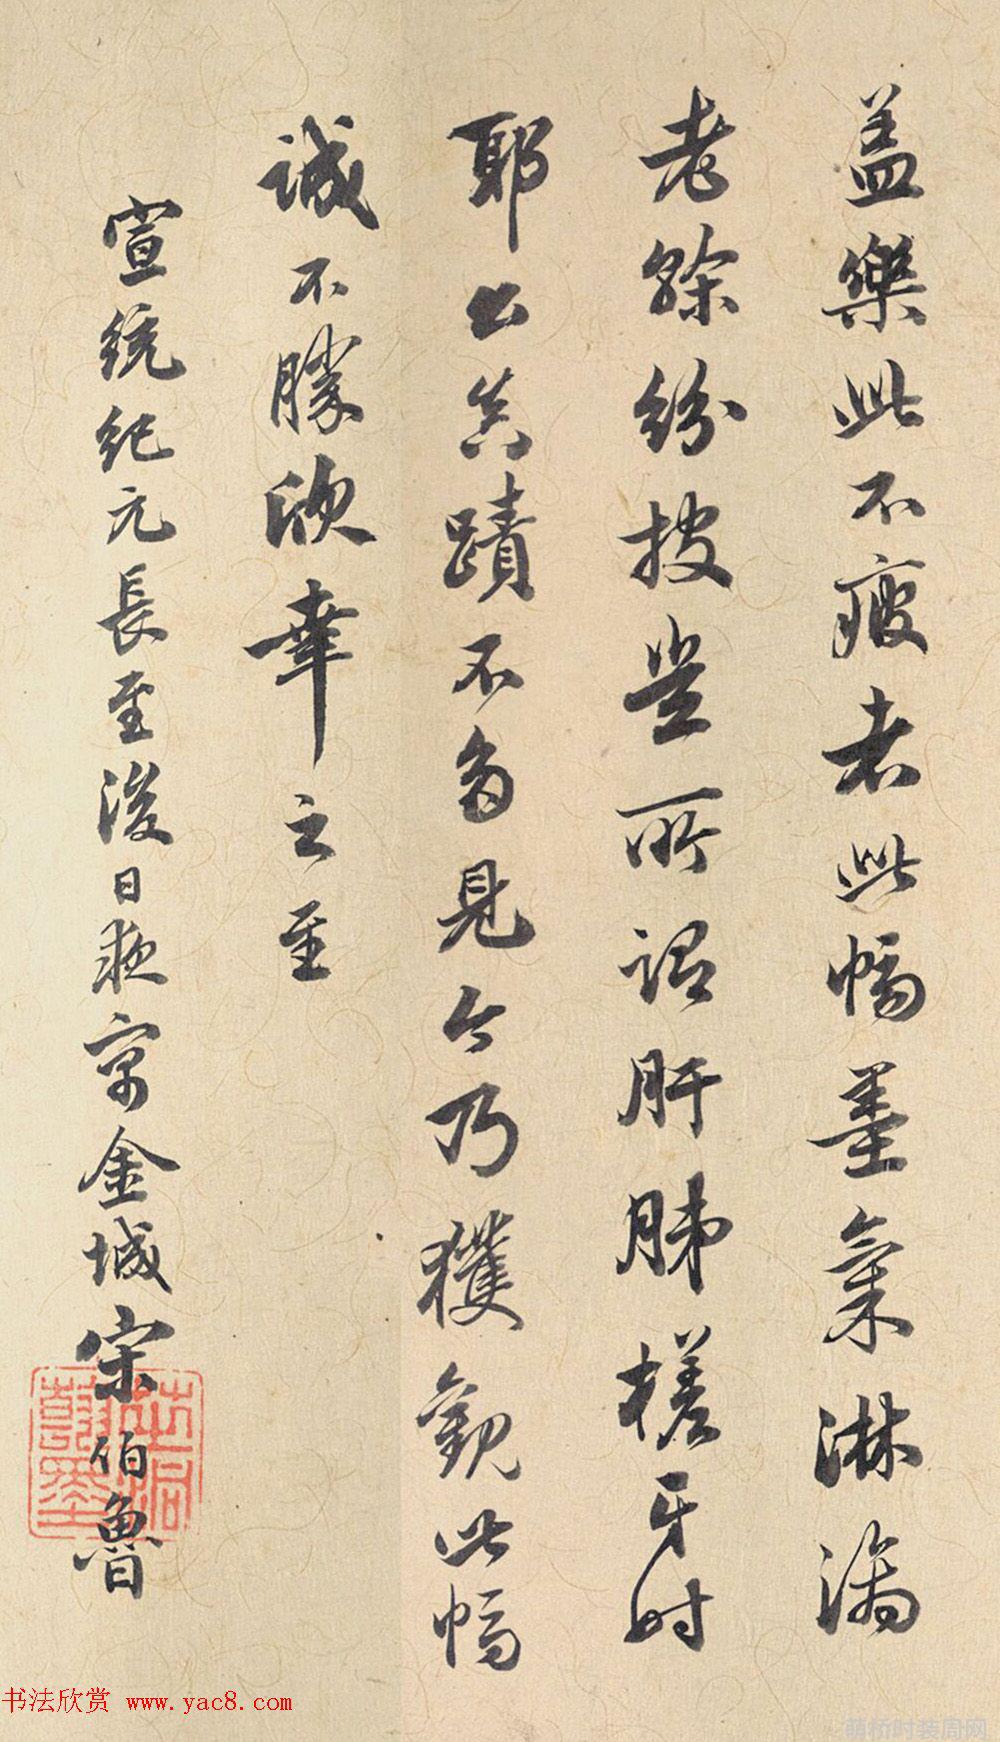 盖樂此不疲者此幅墨氣淋漓
老幹紛披豈所謂肝肺槎牙时
耶公真蹟不多見今乃獲觀此幅
誠不勝欣幸之至
宣統紀元長至後日夜寓金城宋伯魯
书法欣赏 www.yac8.com
萌桥时装周网